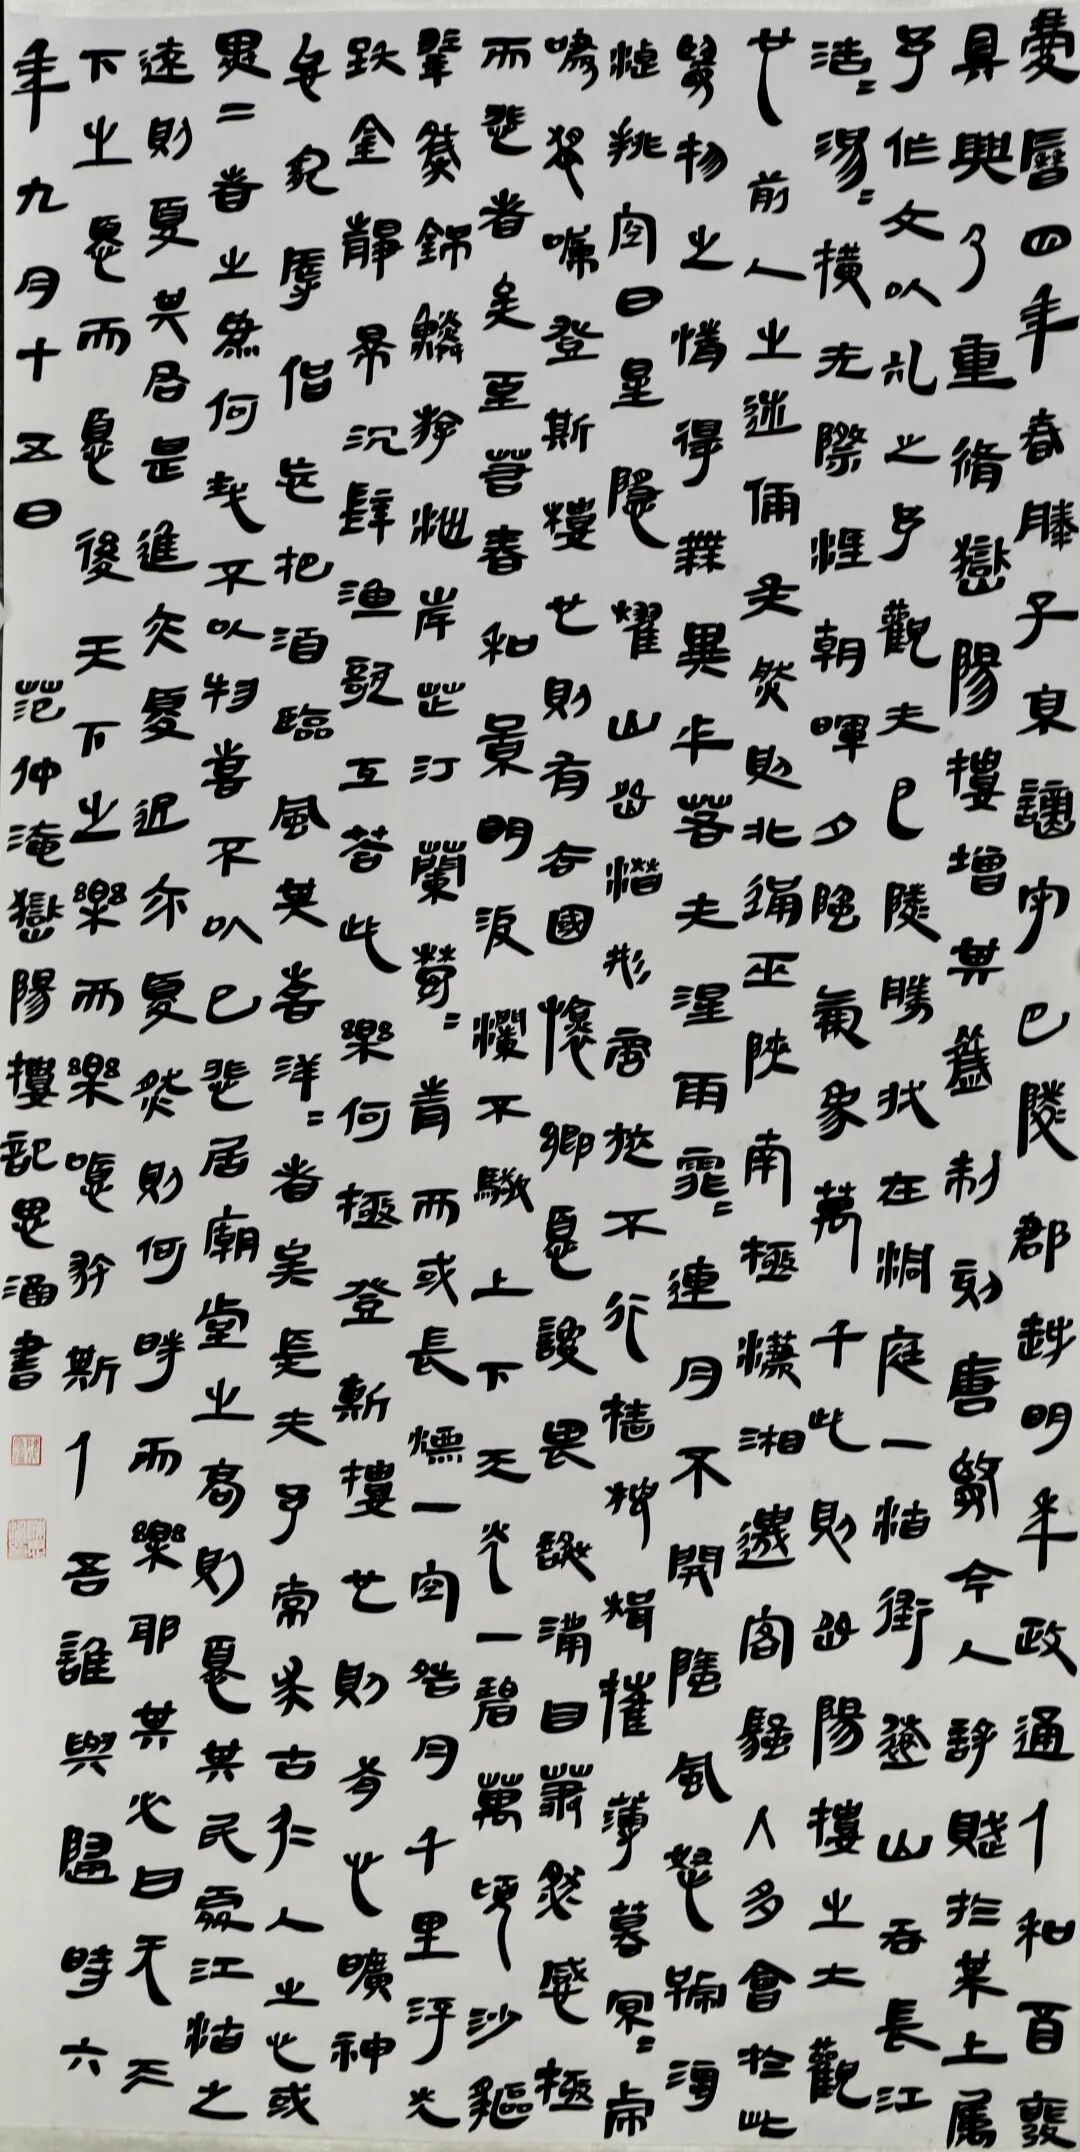 慶曆四年春滕子京謫守巴陵郡越明年政通人和百廢
具興乃重脩嶽陽樓增其舊制刻唐賢今人詩賦於其上屬
予作文以記之予觀夫巴陵勝狀在洞庭一湖銜遠山吞長江
浩=湯=橫无際涯朝暉夕陰氣象萬千此則岳陽樓之大觀
也前人之述備矣然則北通巫陝南極瀟湘遷客騷人多會於此
覽物之情得無異乎若夫淫雨霏=連月不開陰風怒號濁
浪排空日星隱耀山岳潛形商旅不行檣傾楫摧薄暮冥=虎
嘯猿啼登斯樓也則有去國懷鄉憂讒畏譏滿目蕭然感極
而悲者矣至若春和景明波瀾不驚上下天光一碧萬頃沙鷗
翔集錦鱗游泳岸芷汀蘭鬱=青而或長煙一空皓月千里浮光
躍金靜影沉璧漁歌互答此樂何極登斯樓也則有心曠神
怡寵辱偕忘把酒臨風其喜洋=者矣嗟夫予嘗求古仁人之心或
異二者之為何哉不以物喜不以己悲居廟堂之高則憂其民處江湖之
遠則憂其君是進亦憂退亦憂然則何時而樂耶其必曰先天
下之憂而憂後天下之樂而樂噫微斯人吾誰與歸時六
年九月十五日 范仲淹嶽陽樓記思涵書